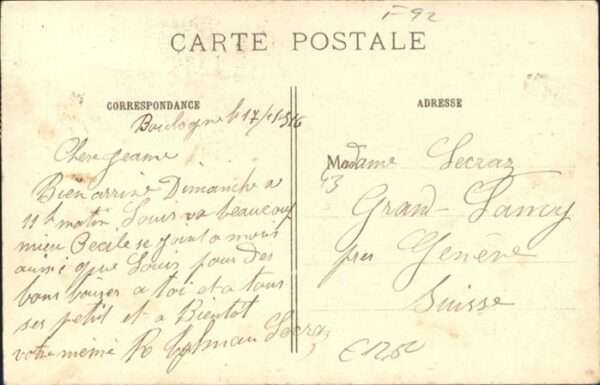 I-92
CARTE POSTALE
CORRESPONDANCE
ADRESSE
Boulogne le 17/
Chere Jeanne
Bien arrivé Dimanche a
11h matin Louis va beaucoup
mieu Cecile se joint a moi
aussi que Louis pour des
bons baiser a toi et a tous
ses petit et a Bientot
votre mémé Lecraz
Madame Lecraz
Grand-Lancy
pres Genève
Suisse